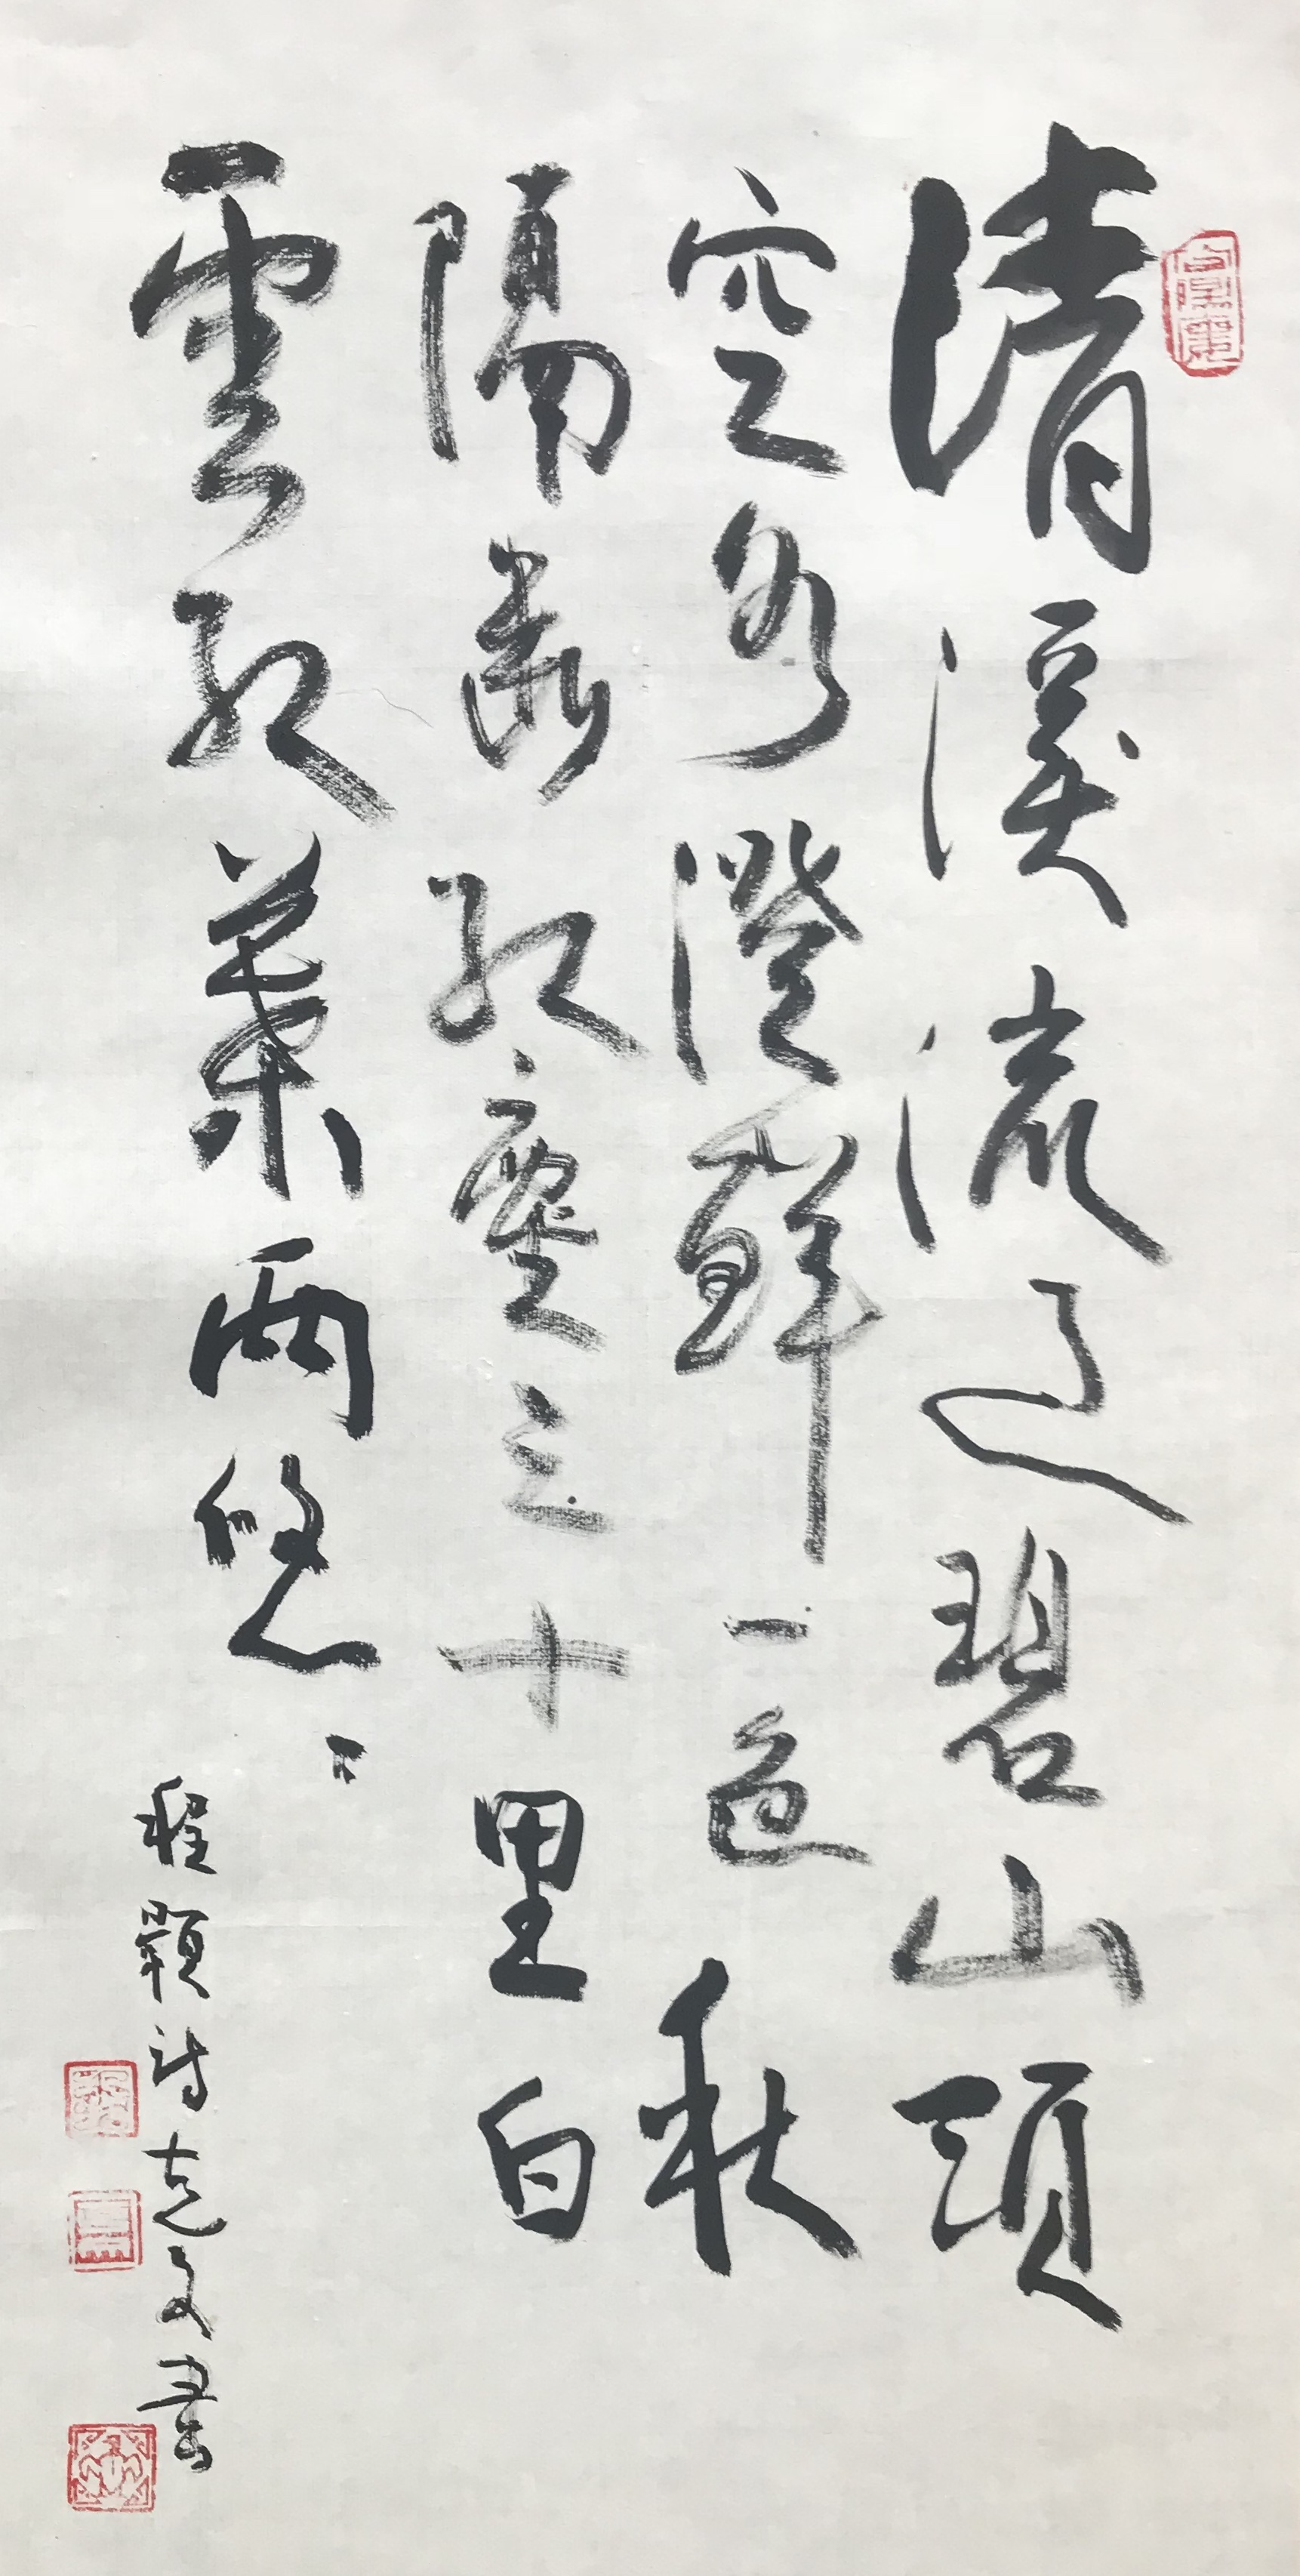 清溪流過碧山頭
空水澄鮮一色秋
隔斷紅塵三十里白
雲紅葉兩悠々
程顥詩克文書